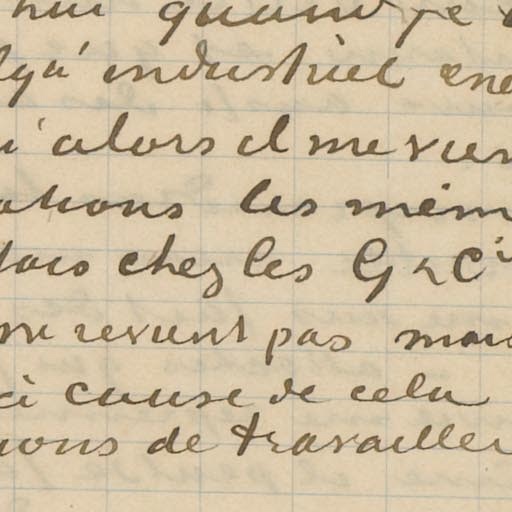 hui quand je
déjà industriel
alors il me vien
ations les mêm
fois chez les G & C
me revient pas mais
à cause de cela
ions de travailler